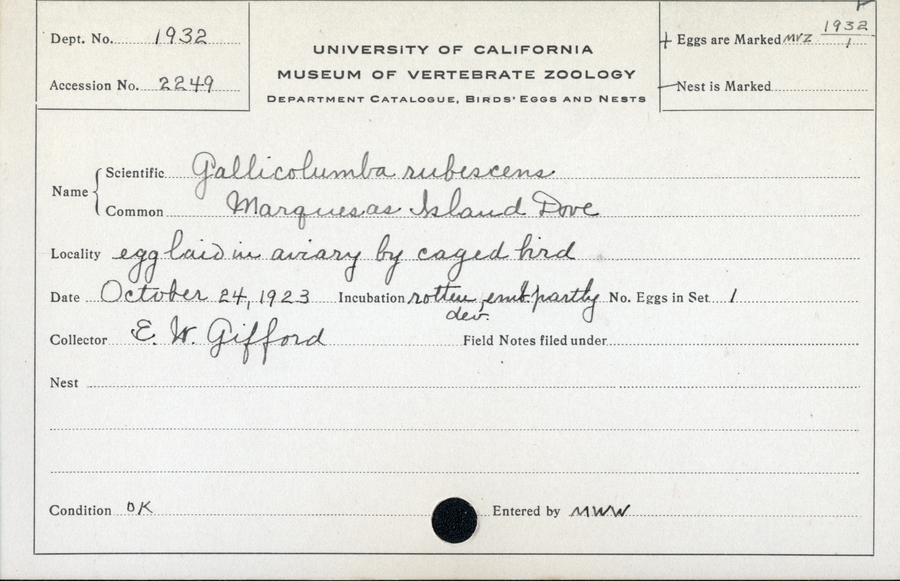 Dept. No. 1932
Accession No. 2249
UNIVERSITY OF CALIFORNIA
MUSEUM OF VERTEBRATE ZOOLOGY
DEPARTMENT CATALOGUE, BIRDS' EGGS AND NESTS
+ Eggs are Marked MVZ 1932/1
— Nest is Marked
Name
Scientific Gallicolumba rubescens
Common Marquesas Island Dove
Locality egg laid in aviary by caged bird
Date October 24, 1923 Incubation rotten, emb. partly dev. No. Eggs in Set 1
Collector E. W. Gifford Field Notes filed under
Nest
Condition OK Entered by MWW